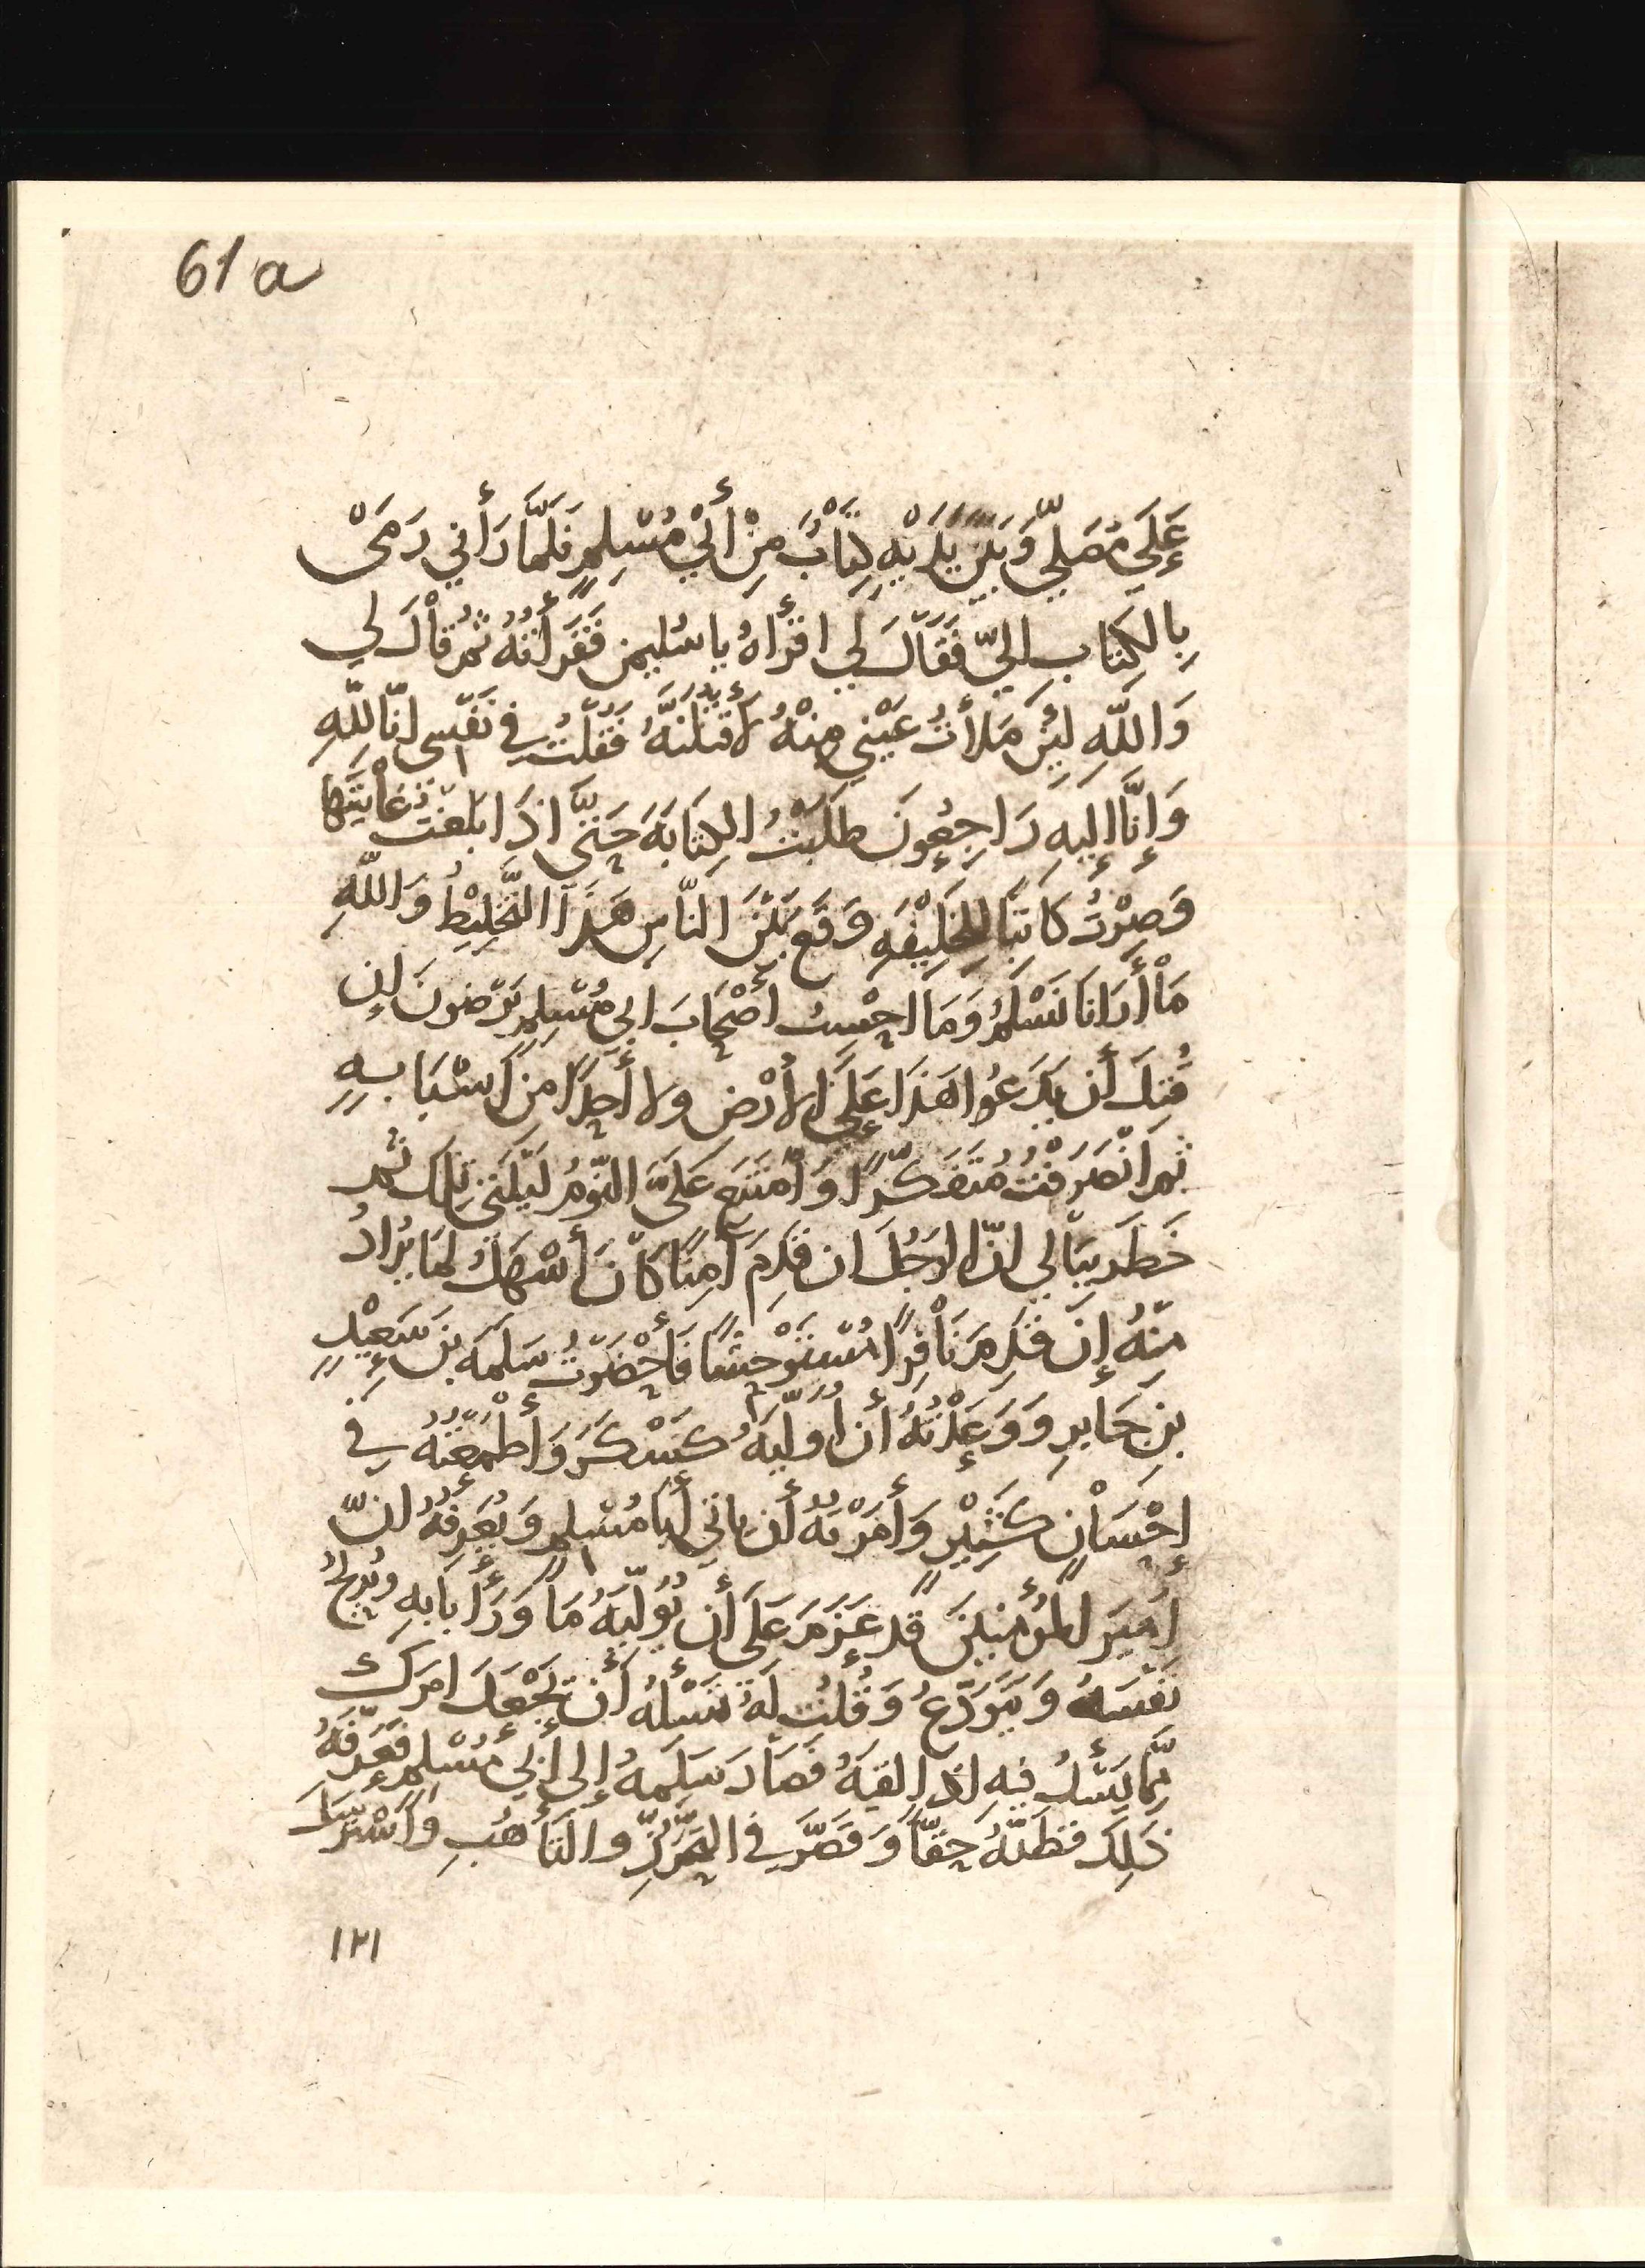 61a
عَلَى مُصَلًّى وَبَيْنَ يَدَيْهِ كِتَابٌ مِنْ أَبِي مُسْلِمٍ فَلَمَّا رَأَنِي رَمَى
بِالكِتَابِ اليّ فَقَالَ لِي اقرَأهُ يا سُليمن فَقَرَأتُهُ ثُمَّ قَالَ لي
وَاللَّهِ لَئِنْ مَلَأتُ عَيْنِي مِنْهُ لَأَقتُلَنَّهُ فَقُلْتُ فِي نَفْسِي انّا للَّهِ
وَإِنَّا إِليهِ رَاجِعُونَ طَلَبْتُ الكِتَابَةَ حَتَّى اذَا بَلَغتُ غَايَتَهَا
وَصِرْتُ كَاتِبًا لِلخَلِيْفَةِ وَقَعَ بَيْنَ النَّاسِ هَذَا التَّخْلِيْطُ وَاللَّهِ
مَا أُرَانَا نَسْلَمُ وَمَا احْسِبُ أَصْحَابَ ابي مُسْلِمٍ يَرْضَونَ إن
قُتِلَ أَن يَدَعُوا هَذَا عَلَى الأَرْضِ ولا أَحَدًا مِن أَسْبَابِهِ
ثمَّ انْصَرَفْتُ مُتَفَكِّرًا وَامْتَنَعَ عَلَيَّ النَّوْمُ لَيْلَتِي تِلكَ ثُمَّ
خَطَرَ بِبَالِي انَّ الرَجُلَ ان قَدِمَ آمِنًا كَانَ أَسْهَلُ لمَا يُرَادُ
مِنْهُ إِنْ قَدِمَ نَافِرًا مُسْتَوْحِشًا فَأَحْضَرْتُ سَلَمَةَ بنَ سَعِيْدِ
بنِ جَابِرٍ وَوَعَدْتُهُ أَن أُوَلِّيَهُ كَسْكَرَ وَأَطْمَعْتُهُ فِي
إِحْسَانٍ كَثِيْرٍ وَأَمَرْتُهُ أَن يأتي أَبَا مُسْلِمٍ وَيُعَرِّفَهُ انَّ
أَمِيرَ المُؤْمِنِيْنَ قَد عَزَمَ عَلَى أَن يُوَلِّيَهُ مَا وَرَأَ بَابِهِ ويُرِيْحُ
نَفْسَهُ وَيَتَوَدَّعُ وَقُلتُ لَهُ تَسْأَلُهُ أَن تَجْعَلَ امرَكَ
مِمَّا يَسْأَلُ فِيهِ اذَا لَقِيَهُ فَصَارَ سَلَمَةُ إِلى أَبِي مُسْلِمٍ فَعَرَّفَهُ
ذَلِكَ فَظَنَّهُ حَقًّا وَقَصَّرَ فِي التَّحَرُّزِ وَالتَّأَهُّبِ وَاسْتَرْسَلَ
١٢١